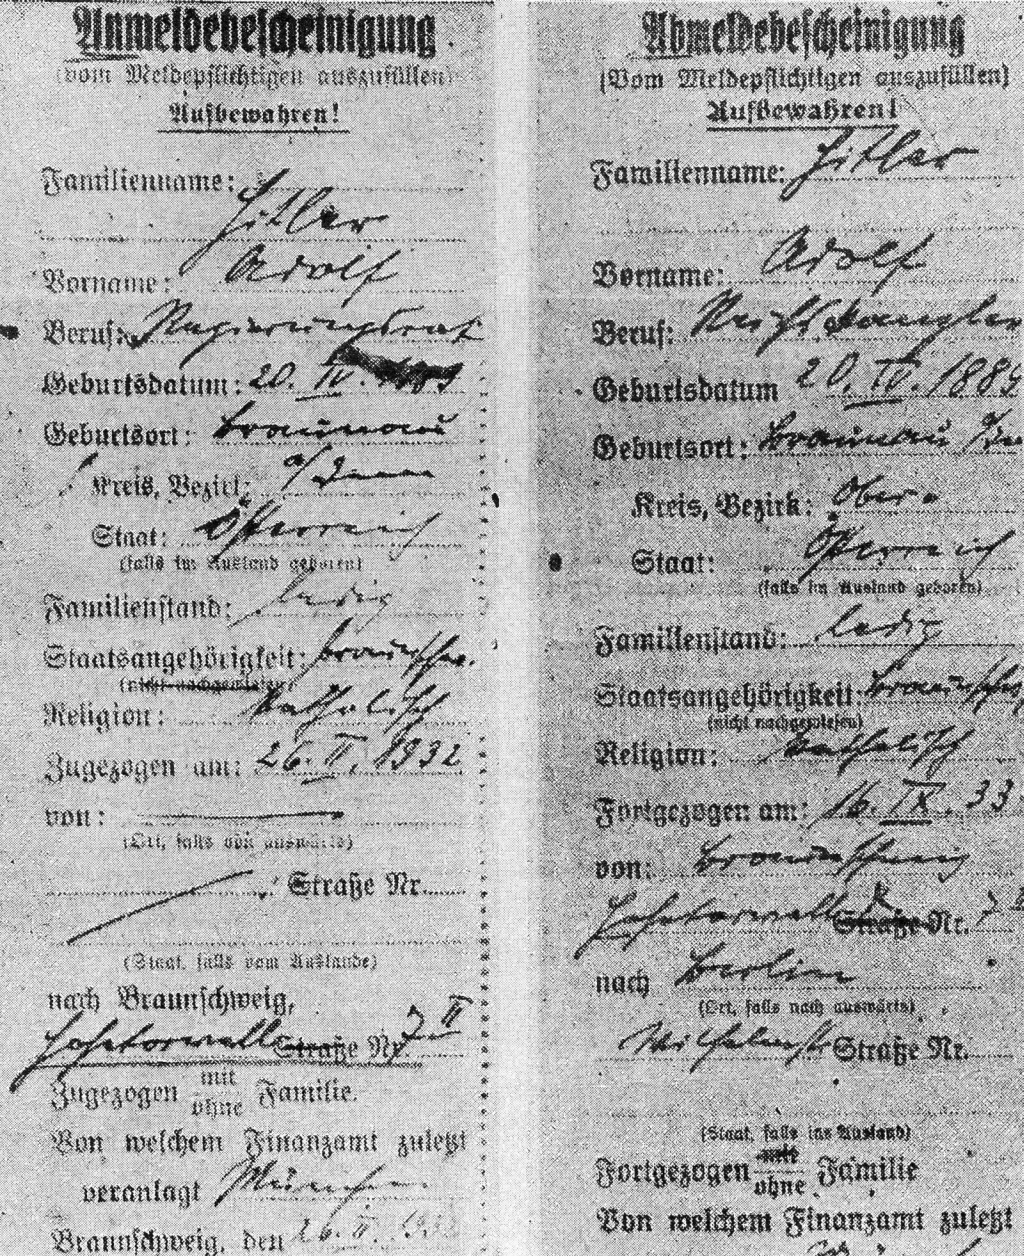 Anmeldebescheinigung
(vom Meldepflichtigen auszufüllen)
Aufbewahren!
Familienname:
Hitler
Vorname: Adolf
Beruf: Regierungsrat
Geburtsdatum: 20. IV.
Geburtsort: Braunau
Kreis, Bezirk: a/Inn
Staat: Österreich
(falls im Ausland geboren)
Familienstand: ledig
Staatsangehörigkeit: braunschw.
(nicht nachgewiesen)
Religion: katholisch
Zugezogen am: 26. II. 1932
von:
(Ort, falls von auswärts)
Straße Nr.
(Staat, falls vom Auslande)
nach Braunschweig,
Hohetorwall Straße Nr. 7 II
Zugezogen mit
ohne Familie.
Von welchem Finanzamt zuletzt
veranlagt München
Braunschweig, den 26. II.
Abmeldebescheinigung
(Vom Meldepflichtigen auszufüllen)
Aufbewahren!
Familienname: Hitler
Vorname: Adolf
Beruf: Reichskanzler
Geburtsdatum 20. IV. 1889
Geburtsort: Braunau a/Inn
Kreis, Bezirk: Ober-
Staat: Österreich
(falls im Ausland geboren)
Familienstand: ledig
Staatsangehörigkeit: braunschw
(nicht nachgewiesen)
Religion: katholisch
Fortgezogen am: 16. IX. 33
von: Braunschweig
Hohetorwall Straße Nr. 7 II
nach Berlin
(Ort, falls nach auswärts)
Wilhelmst. Straße Nr.
(Staat, falls ins Ausland)
Fortgezogen mit
ohne Familie
Von welchem Finanzamt zuletzt